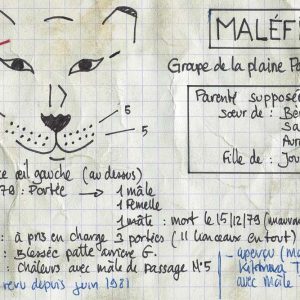 MALÉF
Groupe de la plaine Pa
Parenté supposée
sœur de : Bé
Sa
Auro
Fille de : Jou
5
5
ce œil gauche (au dessus)
79 : Portée → 1 mâle
1 femelle
1 mâle : mort le 15/12/79 (mauvai
: à pris en charge 3 portées (11 lionceaux en tout)
: Blessée patte arrière G.
: Chaleurs avec mâle de passage N°5
revu depuis juin 1981
- aperçu (Ma
avec Mâle